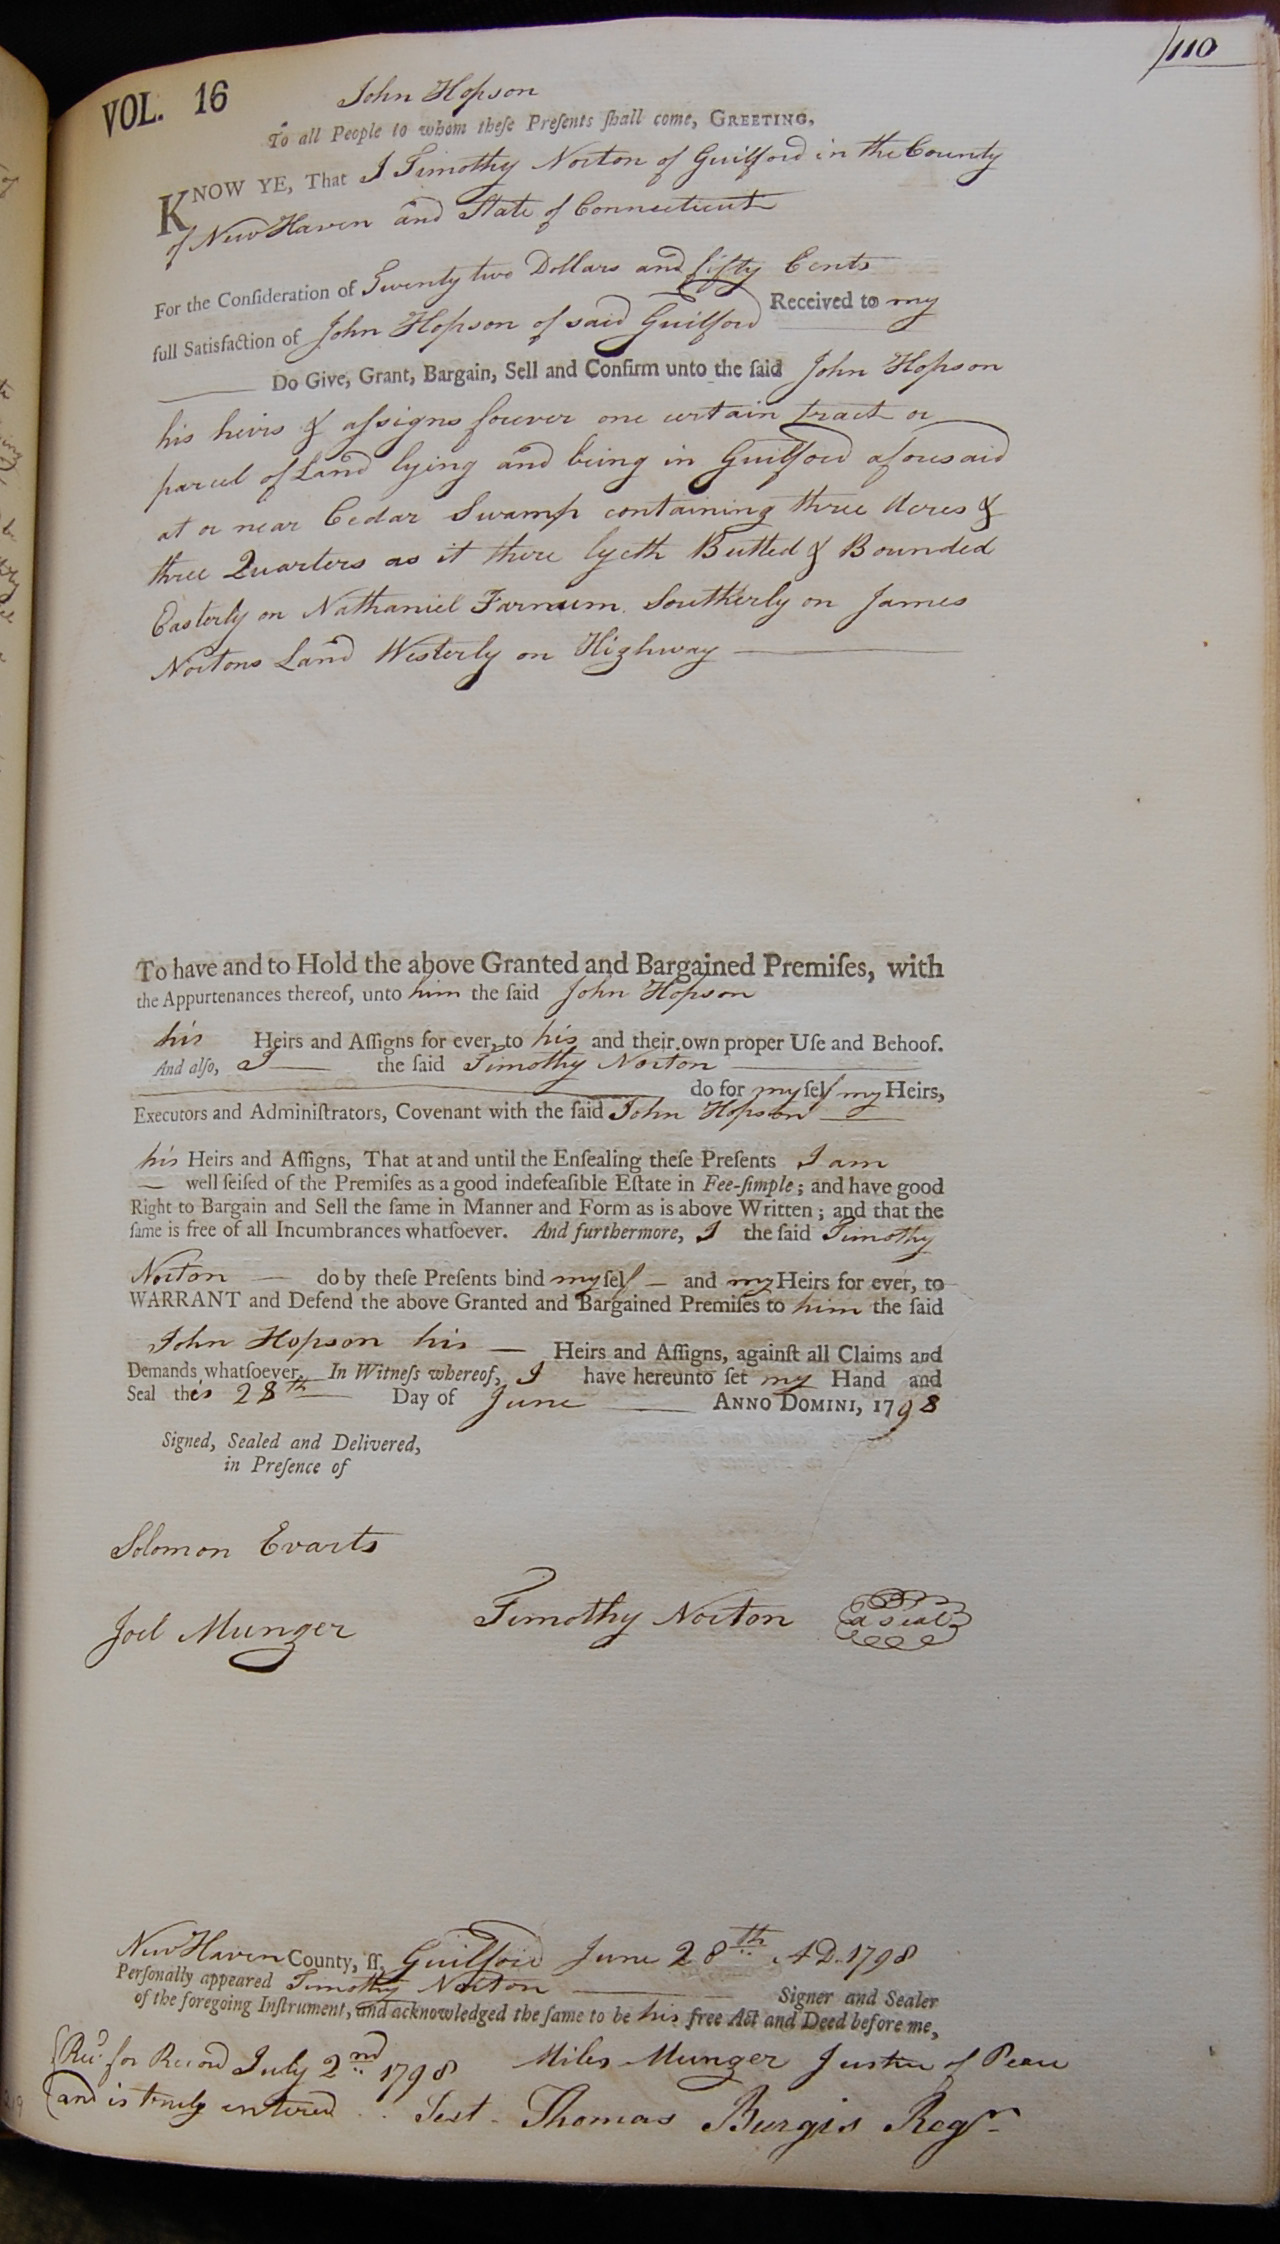 VOL. 16
110
John Hopson
To all People to whom theſe Preſents ſhall come, GREETING,
KNOW YE, That I Timothy Norton of Guilford in the County
of New Haven and State of Connecticut
For the Conſideration of Twenty two Dollars and fifty Cents
full Satisfaction of John Hopson of said Guilford Received to my
Do Give, Grant, Bargain, Sell and Confirm unto the ſaid John Hopson
his heirs & aſsigns forever one certain tract or
parcel of Land lying and being in Guilford aforesaid
at or near Cedar Swamp containing three Acres &
three Quarters as it there lyeth Butted & Bounded
Easterly on Nathaniel Farnum. Southerly on James
Nortons Land Westerly on Highway
To have and to Hold the above Granted and Bargained Premiſes, with
the Appurtenances thereof, unto him the ſaid John Hopson
his Heirs and Aſſigns for ever, to his and their own proper Uſe and Behoof.
And alſo, I the ſaid Timothy Norton
do for my ſelf my Heirs,
Executors and Adminiſtrators, Covenant with the ſaid John Hopson
his Heirs and Aſſigns, That at and until the Enſealing theſe Preſents I am
well ſeiſed of the Premiſes as a good indefeaſible Eſtate in Fee-ſimple; and have good
Right to Bargain and Sell the ſame in Manner and Form as is above Written; and that the
ſame is free of all Incumbrances whatſoever. And furthermore, I the ſaid Timothy
Norton do by theſe Preſents bind my ſelf and my Heirs for ever, to
WARRANT and Defend the above Granted and Bargained Premiſes to him the ſaid
John Hopson his Heirs and Aſſigns, againſt all Claims and
Demands whatſoever. In Witneſs whereof, I have hereunto ſet my Hand and
Seal this 28th Day of June ANNO DOMINI, 1798
Signed, Sealed and Delivered,
in Preſence of
Solomon Evarts
Joel Munger Timothy Norton a seal
New Haven County, ſſ. Guilford June 28th A D. 1798
Perſonally appeared Timothy Norton Signer and Sealer
of the foregoing Inſtrument, and acknowledged the ſame to be his free Act and Deed before me,
Recd. for Record July 2nd 1798 Miles Munger Justice of Peace
and is truly entered Test. Thomas Burgis Regr.